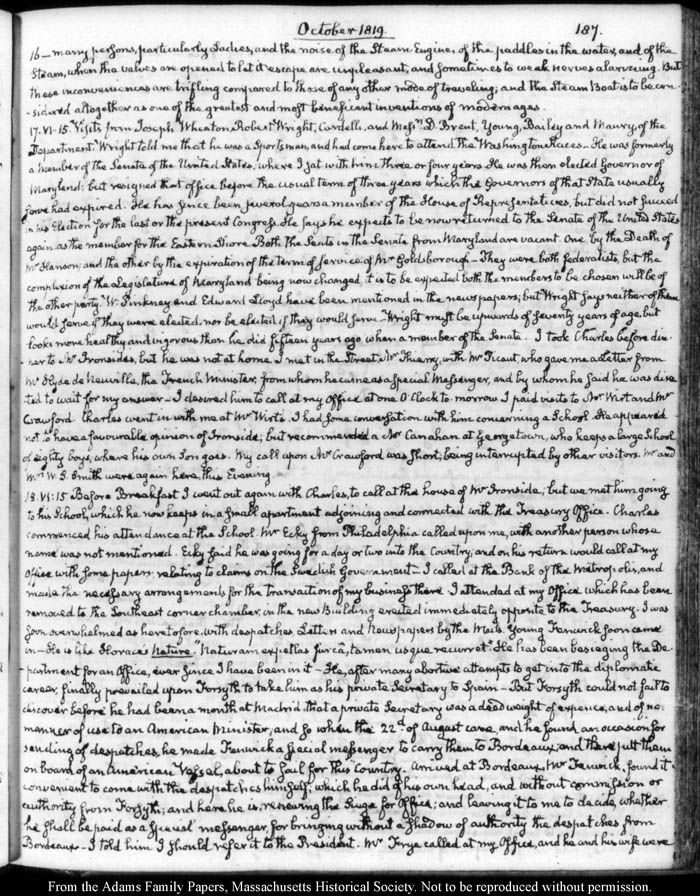 October 1819.
187.
16 — many persons, particularly Ladies, and the noise of the Steam Engine, of the paddles in the water, and of the
Steam, when the valves are opened to let it escape are unpleasant, and sometimes to weak nerves alarming. But
these inconveniences are trifling compared to those of any other mode of traveling; and the Steam Boat is to be con-
-sidered altogether as one of the greatest and most beneficent inventions of modern ages.
17. VI:15. Visits from Joseph Wheaton, Robert Wright, Cardelli, and Messrs D. Brent, Young, Bailey and Maury, of the
Department. Wright told me that he was a Sportsman, and had come here to attend the Washington Races — He was formerly
a member of the Senate of the United States, where I sat with him three or four years. He was then elected Governor of
Maryland; but resigned that office before the usual term of three years which the Governors of that State usually
serve had expired. He has since been several years a member of the House of Representatives, but did not succeed
in his Election for the last or the present Congress. He says he expects to be now returned to the Senate of the United States
again as the member for the Eastern Shore. Both the Seats in the Senate from Maryland are vacant. One by the Death of
Mr Hanson; and the other by the expiration of the term of service of Mr Goldsborough — They were both federalists, but the
complexion of the Legislature of Maryland being now changed, it is to be expected both the members to be chosen will be of
the other party. W. Pinkney and Edward Lloyd have been mentioned in the newspapers; but Wright says neither of them
would serve if they were elected, nor be elected if they would serve — Wright must be upwards of seventy years of age, but
looks more healthy and vigorous than he did fifteen years ago when a member of the Senate. I took Charles before din-
-ner to Mr Ironsides, but he was not at home. I met in the Street, Mr Thierry, with Mr Picaut, who gave me a Letter from
Mr Hyde de Neuville, the French Minister, from whom he came as a Special Messenger, and by whom he said he was direc
ted to wait for my answer — I desired him to call at my office at one O'Clock to-morrow. I paid visits to Mr Wirt and Mr
Crawford. Charles went in with me at Mr Wirt's. I had some conversation with him concerning a School. He appeared
not to have a favourable opinion of Ironside; but recommended a Mr Canahan at Georgetown, who keeps a large School
of eighty boys, where his own Son goes. My call upon Mr Crawford was short; being interrupted by other visitors. Mr and
Mrs W. S. Smith were again here this Evening.
18. VI:15. Before Breakfast I went out again with Charles, to call at the house of Mr Ironside; but we met him going
to his School, which he now keeps in a small apartment adjoining and connected with the Treasury Office. Charles
commenced his attendance at the School. Mr Ecky from Philadelphia called upon me, with another person whose
name was not mentioned. Ecky said he was going for a day or two into the Country, and on his return would call at my
Office with some papers, relating to claims on the Swedish Government — I called at the Bank of the Metropolis, and
made the necessary arrangements for the transaction of my business there. I attended at my Office which has been
removed to the Southeast corner chamber, in the new Building erected immediately opposite to the Treasury. I was
soon overwhelmed as heretofore, with despatches, Letters and Newspapers by the Mails. Young Fenwick soon came
in — He is like Horace's Nature. Naturam expellas furca, tamen usque recurret. He has been besieging the De-
-partment for an Office, ever since I have been in it — He, after many abortive attempts to get into the diplomatic
career, finally prevailed upon Forsyth to take him as his private Secretary to Spain — But Forsyth could not fail to
discover before he had been a month at Madrid that a private Secretary was a dead weight of expence, and of no
manner of use to an American Minister, and so when the 22d of August came, and he found an occasion for
sending of despatches, he made Fenwick a special messenger to carry them to Bordeaux and there put them
on board of an American Vessel, about to sail for this Country. Arrived at Bordeaux, Mr Fenwick, found it
convenient to come with the despatches himself; which he did of his own head, and without commission or
authority from Forsyth; and here he is, renewing the Siege for Office; and leaving it to me to decide, whether
he shall be paid as a special messenger, for bringing without a shadow of authority the despatches from
Bordeaux — I told him I should refer it to the President. Mr Frye called at my Office, and he and his wife were
From the Adams Family Papers, Massachusetts Historical Society. Not to be reproduced without permission.